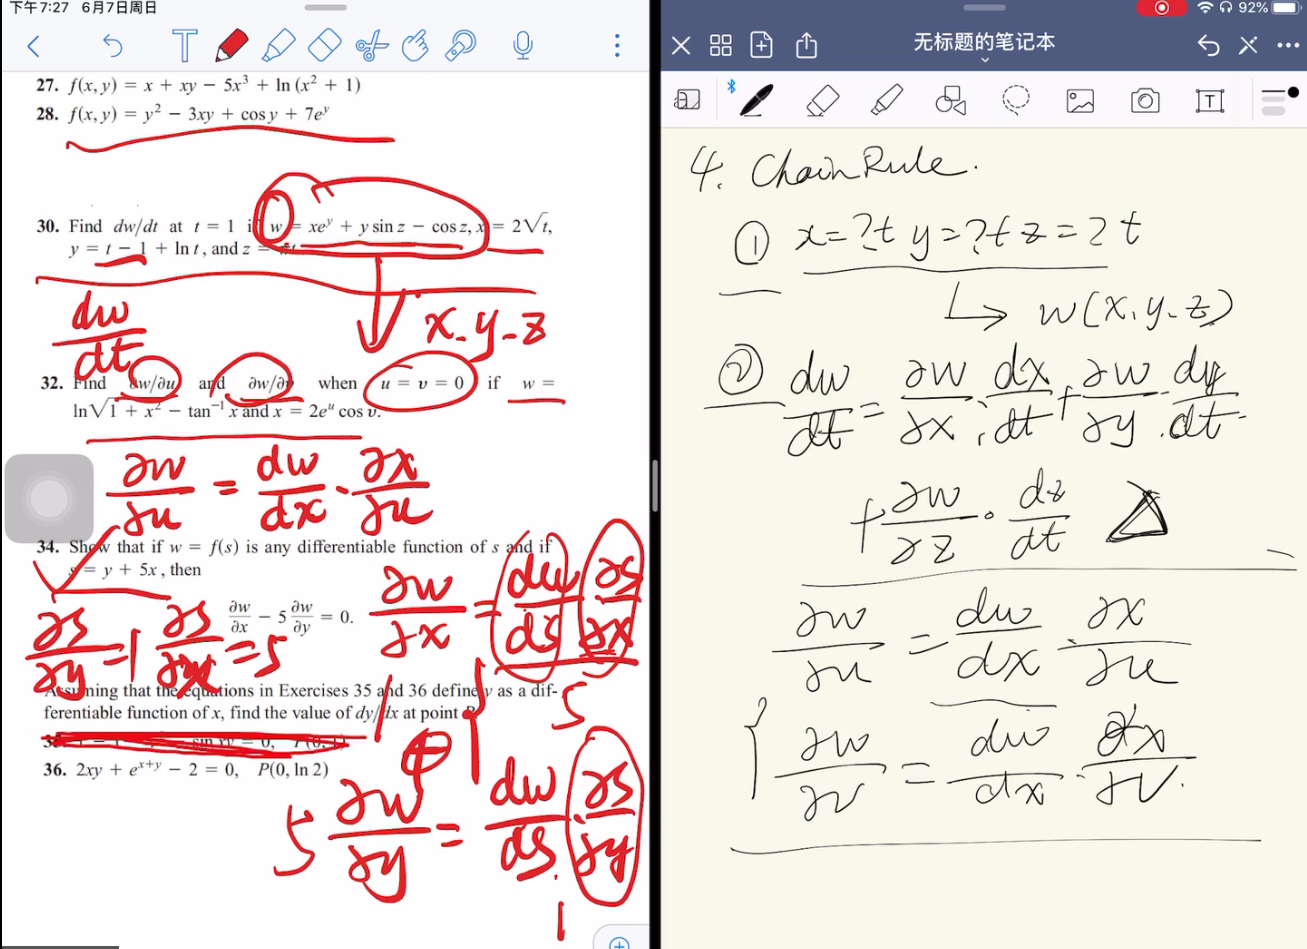 下午7:27 6月7日周日
92%
无标题的笔记本
27. f(x, y) = x + xy − 5x³ + ln (x² + 1)
28. f(x, y) = y² − 3xy + cos y + 7eʸ
30. Find dw/dt at t = 1 if w = xeʸ + y sin z − cos z, x = 2√t,
y = t − 1 + ln t, and z =
dw/dt
x-y-z
32. Find ∂w/∂u and ∂w/∂v when u = v = 0 if w =
ln√1 + x² − tan⁻¹ x and x = 2eᵘ cos v.
∂w/∂u = dw/dx · ∂x/∂u
34. Show that if w = f(s) is any differentiable function of s and if
s = y + 5x, then
∂w/∂x − 5 ∂w/∂y = 0.
∂w/∂x = dw/ds ∂s/∂x
∂s/∂y = 1 ∂s/∂x = 5
5
Assuming that the equations in Exercises 35 and 36 define y as a dif-
ferentiable function of x, find the value of dy/dx at point P.
36. 2xy + eˣ⁺ʸ − 2 = 0, P(0, ln 2)
5 ∂w/∂y = dw/ds · ∂s/∂y
1
4. Chain Rule.
① x=?t y=?t z=?t
↳ w(x,y-z)
② dw/dt = ∂w/∂x · dx/dt + ∂w/∂y · dy/dt
+ ∂w/∂z · dz/dt △
∂w/∂u = dw/dx · ∂x/∂u
∂w/∂v = dw/dx · ∂x/∂v.